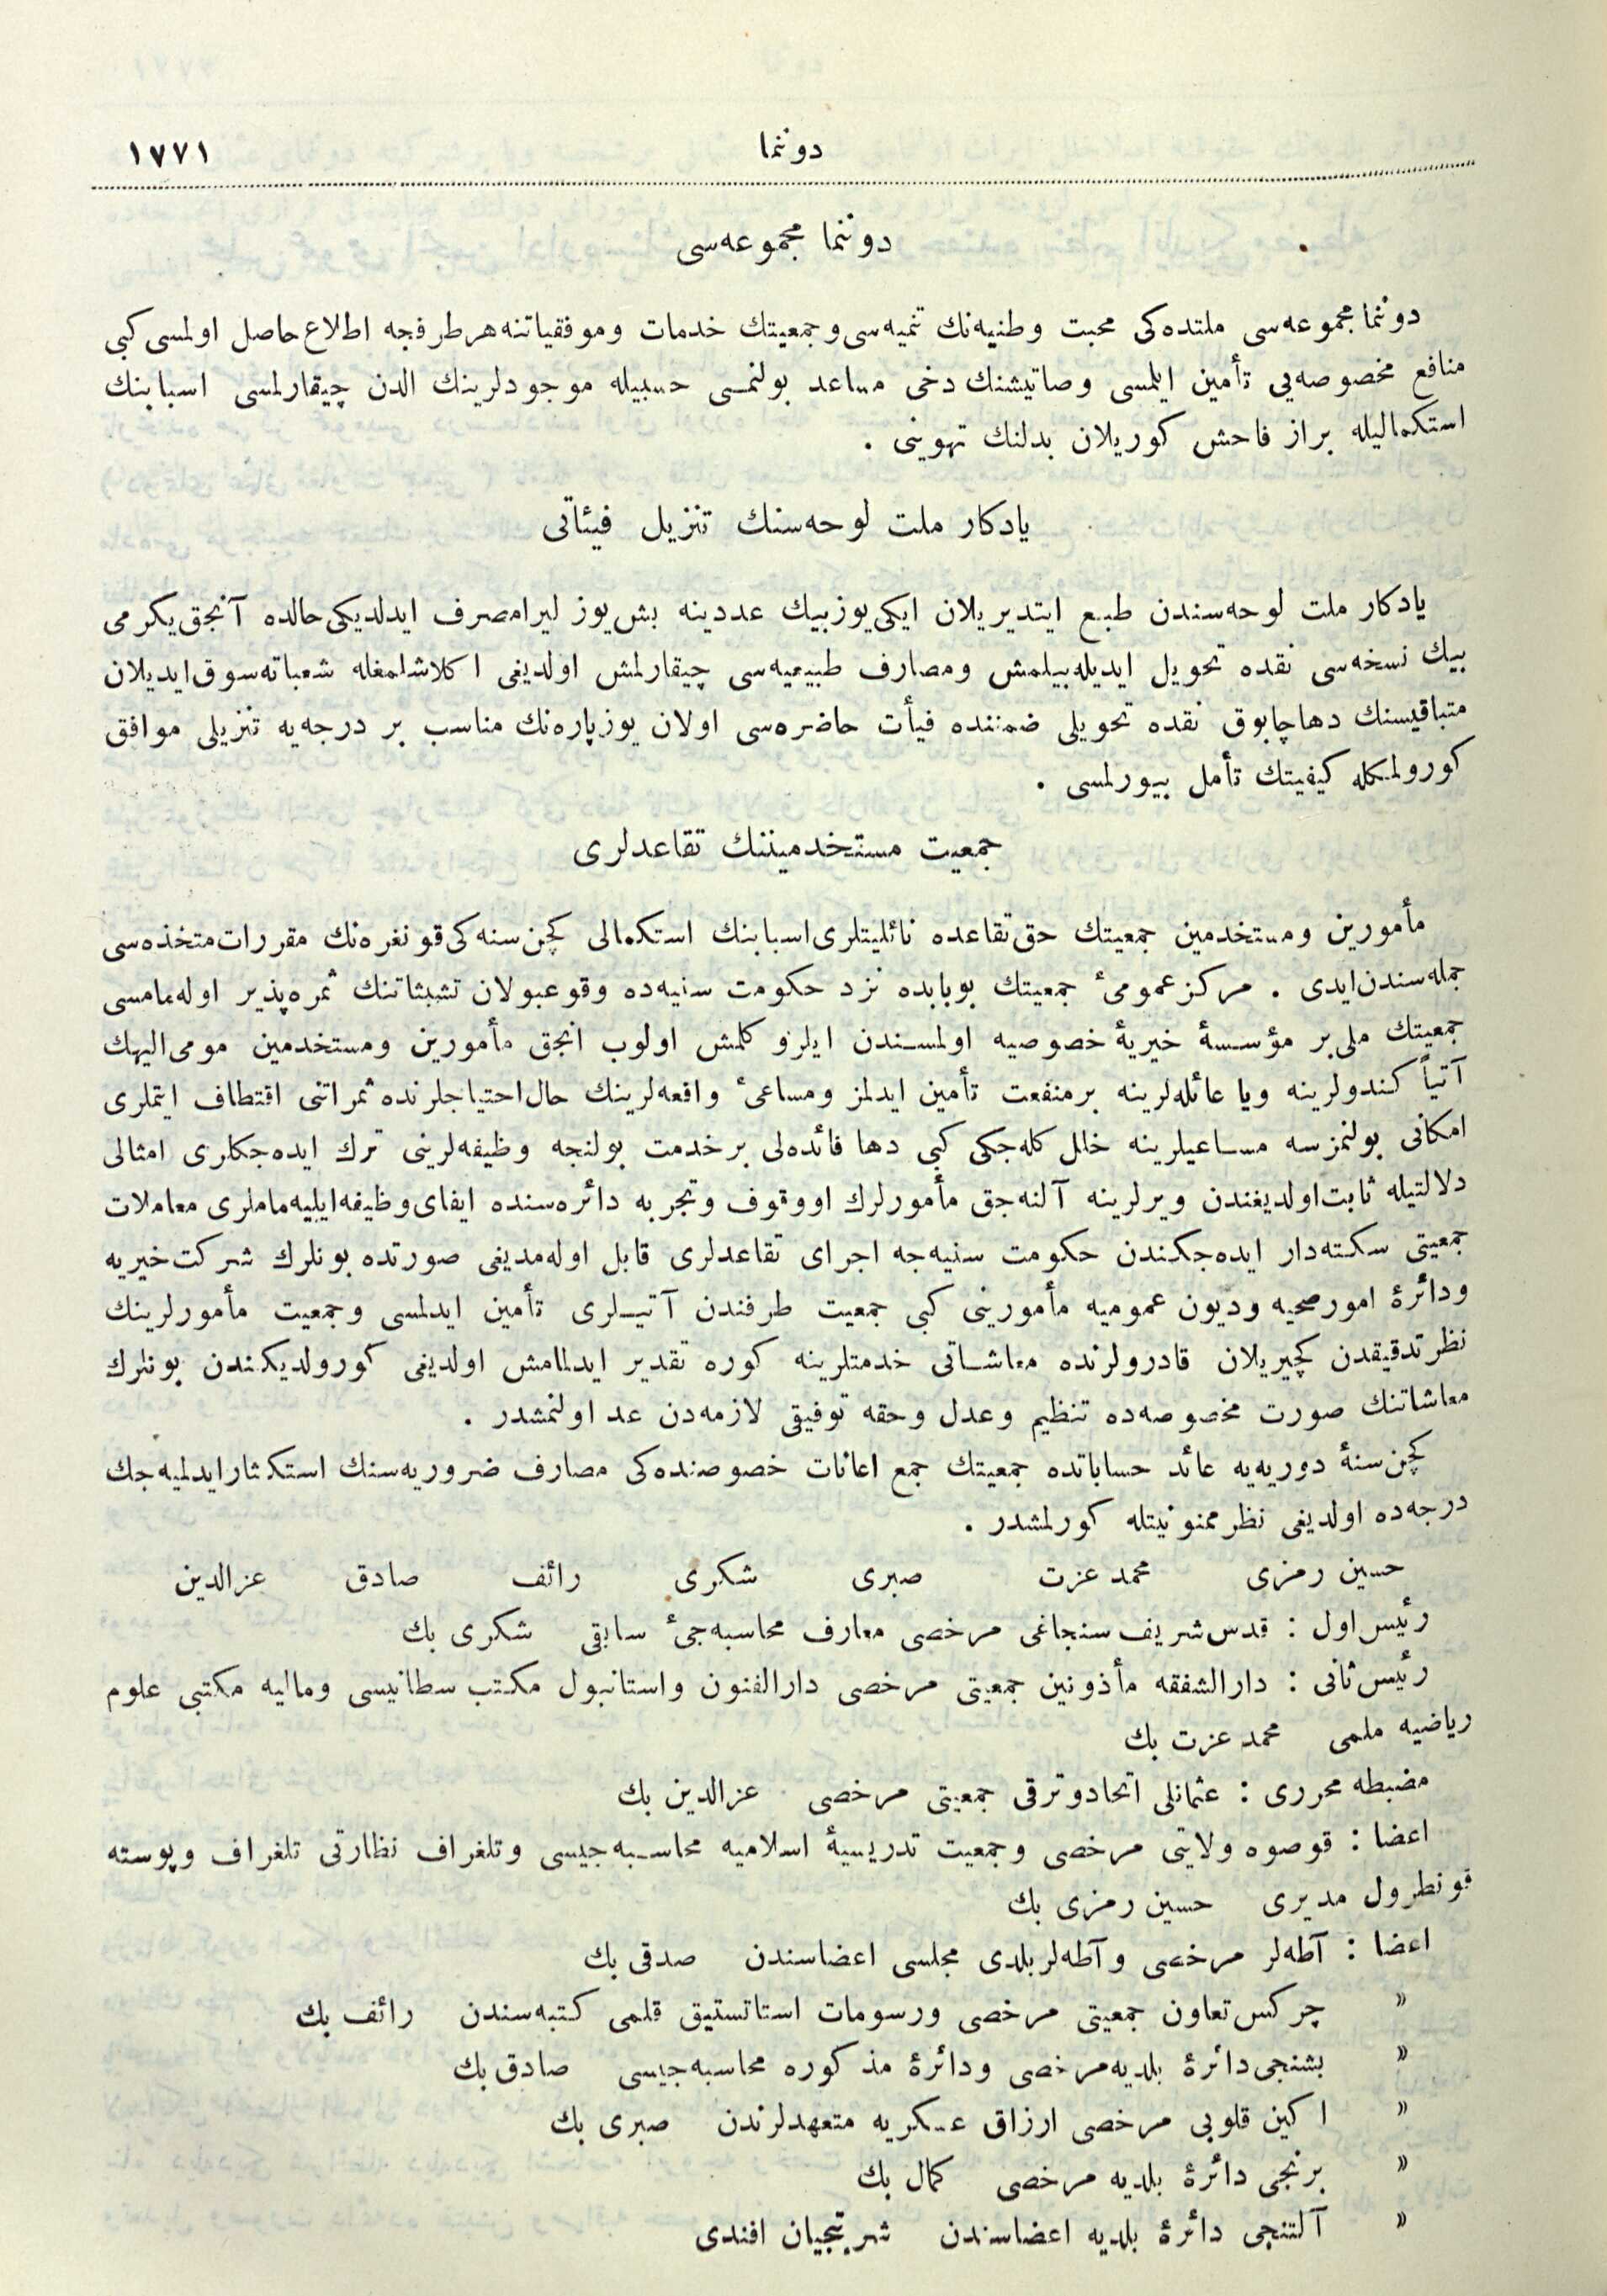 دوننما
١٧٧١
دوننما مجموعه‌سی
دوننما مجموعه‌سی ملتده‌كی محبت وطنیه‌نك تنمیه‌سی وجمعیتك خدمات وموفقیاتنه هرطرفجه اطلاع حاصل اولمسی كبی
منافع مخصوصه‌یی تأمین ایلمسی وصاتیشنك دخی مساعد بولنمسی حسبیله موجودلرینك الدن چیقارلمسی اسبابنك
استكمالیله براز فاحش كوریلان بدلنك تهوینی .
یادكار ملت لوحه‌سنك تنزیل فیئاتی
یادكار ملت لوحه‌سندن طبع ایتدیریلان ایكی‌یوزبیك عددینه بش‌یوز لیرامصرف ایدلدیكی‌حالده آنجق‌یكرمی
بیك نسخه‌سی نقده تحویل ایدیله‌بیلمش ومصارف طبیعیه‌سی چیقارلمش اولدیغی اكلاشلمغله شعباته‌سوق‌ایدیلان
متباقیسنك دهاچابوق نقده تحویلی ضمننده فیأت حاضره‌سی اولان یوزپاره‌نك مناسب بر درجه‌یه تنزیلی موافق
كورولمكله كیفیتك تأمل بیورلمسی .
جمعیت مستخدمیننك تقاعدلری
مأمورین ومستخدمین جمعیتك حق‌تقاعده نائلیتلری‌اسبابنك استكمالی كچن‌سنه‌كی‌قونغره‌نك مقررات‌متخذه‌سی
جمله‌سندن‌ایدی . مركزعمومیٔ جمعیتك بوبابده نزد حكومت سنیه‌ده وقوعبولان تشبثاتنك ثمره‌پذیر اوله‌مامسی
جمعیتك ملی‌بر مؤسسهٔ خیریهٔ خصوصیه اولمسندن ایلرو كلمش اولوب انجق مأمورین ومستخدمین مومی‌الیهك
آتیاً كندولرینه ویا عائله‌لرینه برمنفعت تأمین ایدلمز ومساعیٔ واقعه‌لرینك حال‌احتیاجلرنده ثمراتنی اقتطاف ایتملری
امكانی بولنمزسه مساعیلرینه خلل كله‌جكی كبی دها فائده‌لی برخدمت بولنجه وظیفه‌لرینی ترك ایده‌جكلری امثالی
دلالتیله ثابت‌اولدیغندن ویرلرینه آلنه‌جق مأمورلرك اووقوف وتجربه دائره‌سنده ایفای‌وظیفه‌ایلیه‌ماملری معاملات
جمعیتی سكته‌دار ایده‌جكندن حكومت سنیه‌جه اجرای تقاعدلری قابل اوله‌مدیغی صورتده بونلرك شركت‌خیریه
ودائرهٔ امورصحیه ودیون عمومیه مأمورینی كبی جمعیت طرفندن آتیلری تأمین ایدلمسی وجمعیت مأمورلرینك
نظرتدقیقدن كچیریلان قادرولرنده معاشاتی خدمتلرینه كوره تقدیر ایدلمامش اولدیغی كورولدیكندن بونلرك
معاشاتنك صورت مخصوصه‌ده تنظیم وعدل وحقه توفیقی لازمه‌دن عد اولنمشدر .
كچن‌سنهٔ دوریه‌یه عائد حساباتده جمعیتك جمع اعانات خصوصنده‌كی مصارف ضروریه‌سنك استكثارایدلمیه‌جك
درجه‌ده اولدیغی نظرممنونیتله كورلمشدر .
حسین رمزی محمد عزت صبری شكری رائف صادق عزالدین
رئیس‌اول : قدس‌شریف‌سنجاغی مرخصی معارف محاسبه‌جیٔ سابقی شكری بك
رئیس‌ثانی : دارالشفقه مأذونین جمعیتی مرخصی دارالفنون واستانبول مكتب سطانیسی ومالیه مكتبی علوم
ریاضیه ملمی محمد عزت بك
مضبطه محرری : عثمانلی اتحادوترقی جمعیتی مرخصی عزالدین بك
اعضا : قوصوه ولایتی مرخصی وجمعیت تدریسیهٔ اسلامیه محاسبه‌جیسی وتلغراف نظارتی تلغراف وپوسته
قونطرول مدیری حسین رمزی بك
اعضا : آطه‌لر مرخصی وآطه‌لربلدی مجلسی اعضاسندن صدقی بك
» چركس‌تعاون جمعیتی مرخصی ورسومات استاتستیق قلمی كتبه‌سندن رائف بك
» بشنجی‌دائرهٔ بلدیه‌مرخصی ودائرهٔ مذكوره محاسبه‌جیسی صادق‌بك
» اكین قلوبی مرخصی ارزاق عسكریه متعهدلرندن صبری بك
» برنجی دائرهٔ بلدیه مرخصی كمال بك
» آلتنجی دائرهٔ بلدیه اعضاسندن افندی